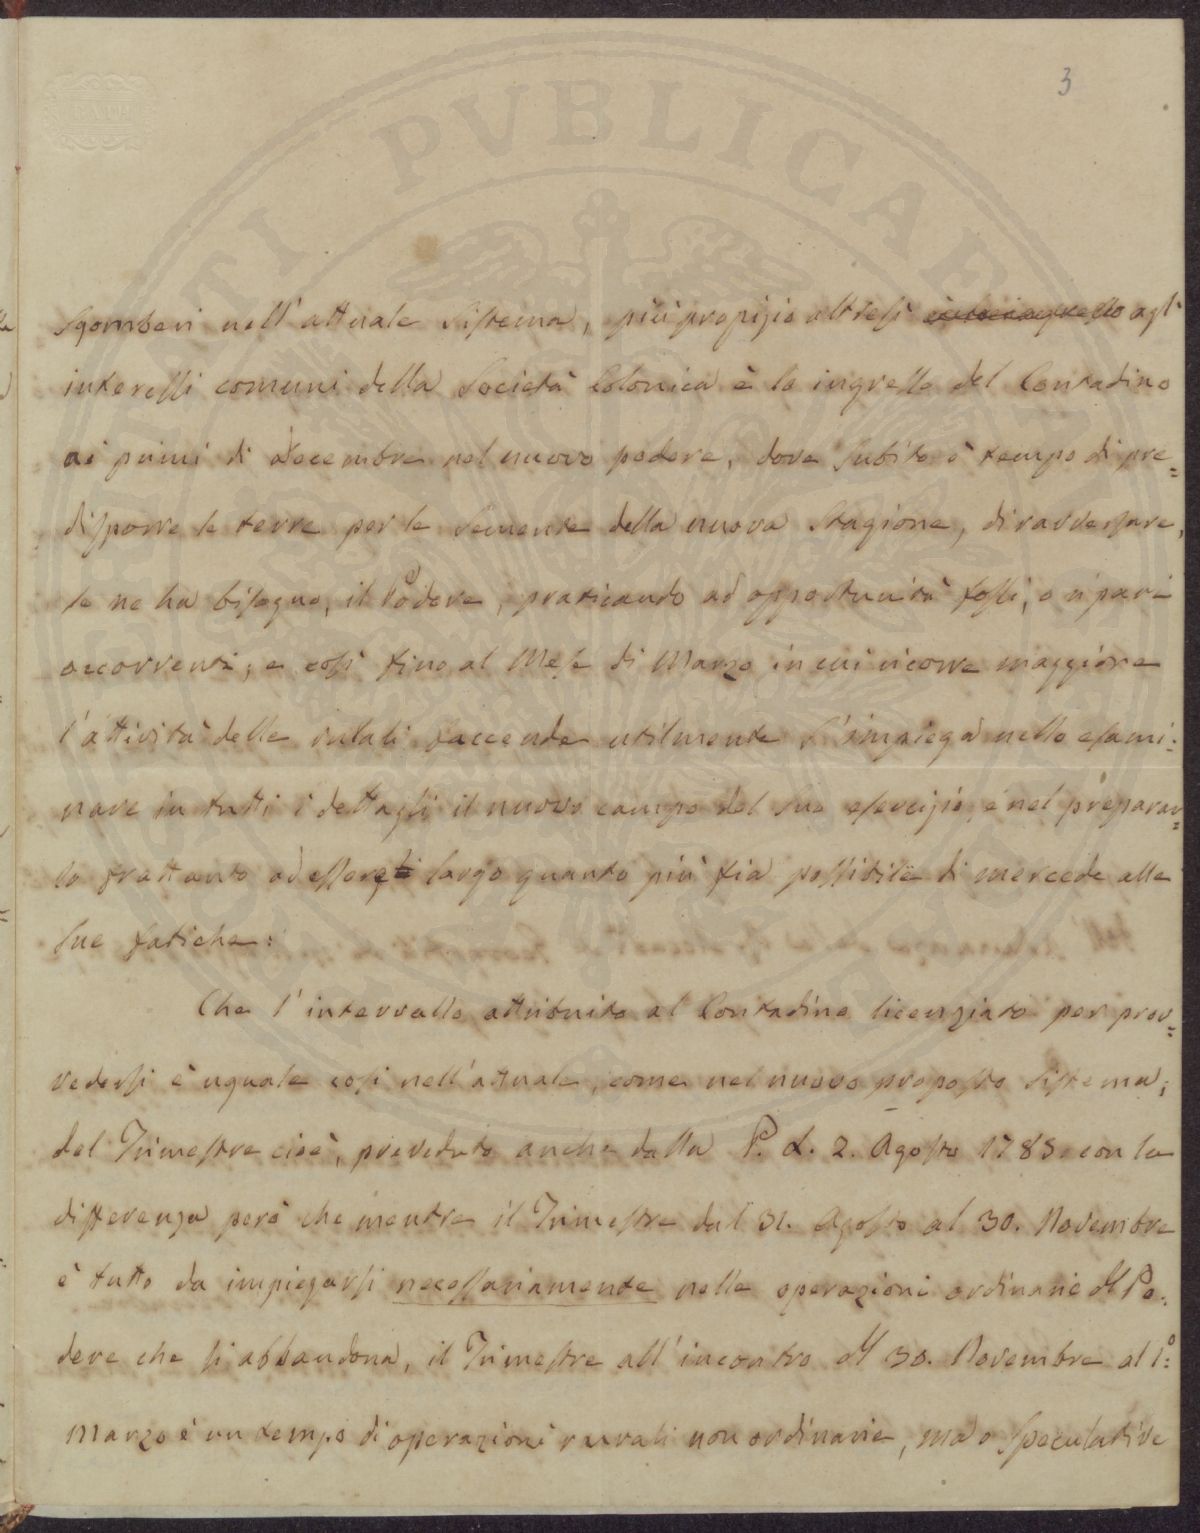 3
Sgomberi nell'attuale Sistema, più propizio altresì agl'
interessi comuni della Società Colonica è lo ingresso del Contadino
ai primi di Decembre nel nuovo podere, dove subito è tempo di pre=
disporre le terre per le Semente della nuova Stagione, di ravversare,
se ne ha bisogno, il Podere, praticando ad opportunità fossi, o ripari
occorrenti, e così fino al Mese di Marzo in cui ricorre maggiore
l'attività delle rurali faccende utilmente s'impiega nello esami=
nare in tutti i dettagli il nuovo campo del suo esercizio, e nel preparar=
lo frattanto ad essere largo quanto più fia possibile di mercede alle
sue fatiche:
Che l'intervallo attribuito al Contadino licenziato per prov=
vedersi è uguale così nell'attuale, come nel nuovo proposto Sistema;
del Trimestre cioè, preveduto anche dalla P. L. 2. Agosto 1785. con la
differenza però che mentre il Trimestre dal 31. Agosto al 30. Novembre
è tutto da impiegarsi necessariamente nelle operazioni ordinarie del Po=
dere che si abbandona, il Trimestre all'incontro del 30. Novembre al 1°.
Marzo è un tempo di operazioni rurali non ordinarie, ma o Speculative
PVBLICAE